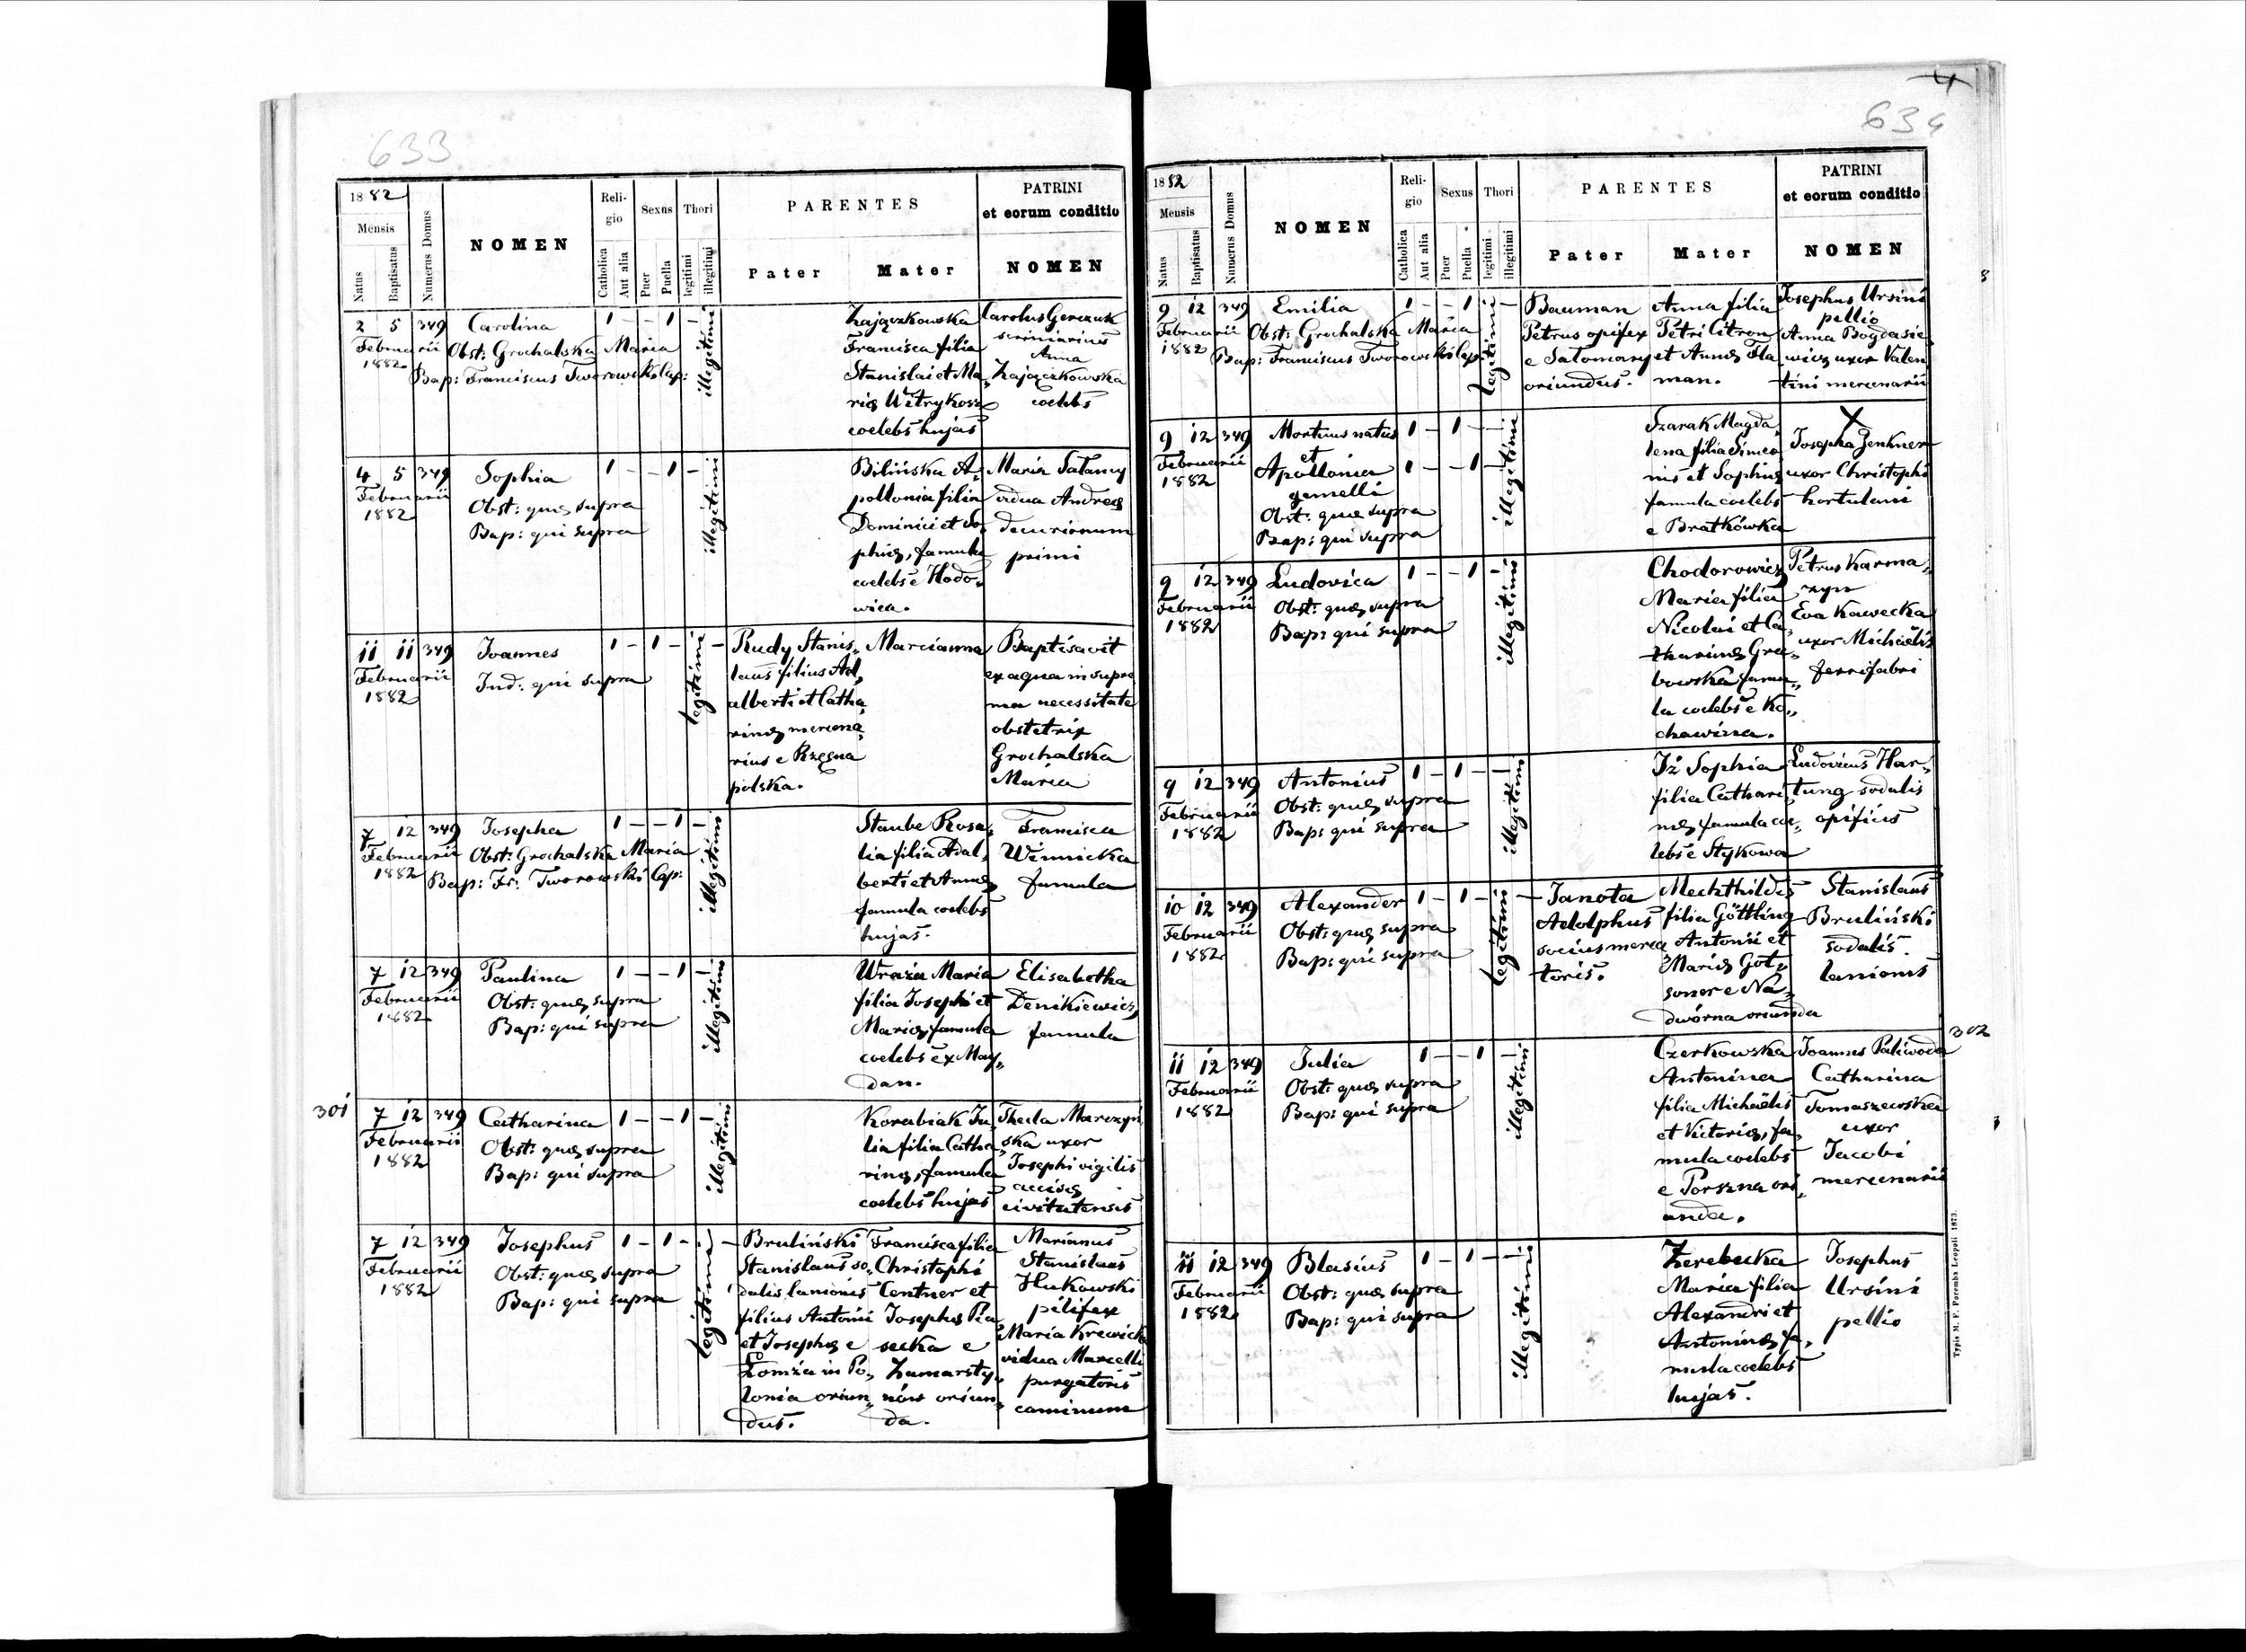 633
1882
Mensis
Natus
Baptisatus
Numerus Domus
NOMEN
Religio
Catholica
Aut alia
Sexus
Puer
Puella
Thori
legitimi
illegitimi
PARENTES
Pater
Mater
PATRINI
et eorum conditio
NOMEN
2 5 349 Carolina 1 – – 1 –
Februarii Obst: Grochalska Maria
1882 Bap: Franciscus Tworowski Cap:
illegitimi
Zajączkowska
Francisca filia
Stanislai et Ma„
riæ Wetrykosz
coelebs hujas
Carolus Gerczuk
scriniarius
Anna
Zajączkowska
coelebs
4 5 349 Sophia 1 – – 1 –
Februarii Obst: quæ supra
1882 Bap: qui supra
illegitimi
Bilińska A„
pollonia filia
Dominici et So„
phiæ, famula
coelebs e Hodo„
wica.
Maria Satany
vidua Andreæ
decurionum
primi
11 11 349 Joannes 1 – 1 – –
Februarii Ind: qui supra
1882
legitimi
Rudy Stanis„
laus filius Ad„
alberti et Catha„
rinæ mercena„
rius e Rzęsna
polska.
Marianna
Baptisavit
ex aqua in supre
ma necessitate
obstetrix
Grochalska
Maria
7 12 349 Josepha 1 – – 1 –
Februarii Obst: Grochalska Maria
1882 Bap: Fr: Tworowski Cap:
illegitimi
Staube Rosa„
lia filia Adal„
berti et Annæ
famula coelebs
hujas.
Francisca
Winnicka
famula
7 12 349 Paulina 1 – – 1 –
Februarii Obst: quæ supra
1882 Bap: qui supra
illegitimi
Wraża Maria
filia Josephi et
Mariæ, famula
coelebs ex May„
dan.
Elisabetha
Denikiewicz
famula
301
7 12 349 Catharina 1 – – 1 –
Februarii Obst: quæ supra
1882 Bap: qui supra
illegitimi
Korabiak Ju„
lia filia Catha„
rinæ, famula
coelebs hujas
Thecla Marczyń
ska uxor
Josephi vigilis
accisæ
civitatensis
7 12 349 Josephus 1 – 1 – –
Februarii Obst: quæ supra
1882 Bap: qui supra
legitimi
Bruliński
Stanislaus so„
dalis lanionis
filius Antonii
et Josephæ e
Łomża in Po„
lonia oriun„
dus.
Francisca filia
Christophi
Centner et
Josephæ Pia
secka e
Zamarsty„
nów oriun„
da.
Marianus
Stanislaus
Hukowski
pilifex
Maria Krewicka
vidua Marcelli
purgatoris
caminum
634
1882
Mensis
Natus
Baptisatus
Numerus Domus
NOMEN
Religio
Catholica
Aut alia
Sexus
Puer
Puella
Thori
legitimi
illegitimi
PARENTES
Pater
Mater
PATRINI
et eorum conditio
NOMEN
9 12 349 Emilia 1 – – 1 –
Februarii Obst: Grochalska Maria
1882 Bap: Franciscus Tworowski Cap:
legitimi
Bauman
Petrus opifex
e Satomary
oriundus.
Anna filia
Petri Citron
et Annæ Fla
man.
Josephus Ursini
pellio
Anna Bogdasie
wicz uxor Valen
tini mercenarii
9 12 349 Mortuus natus 1 – 1 – –
Februarii et
1882 Apollonia 1 – – 1 –
gemelli
Obst: quæ supra
Bap: qui supra
illegitimi
Szarak Magda„
lena filia Simeo„
nis et Sophiæ
famula coelebs
e Bratkówka
X
Josepha Zenkner
uxor Christophi
hortulani
9 12 349 Ludovica 1 – – 1 –
Februarii Obst: quæ supra
1882 Bap: qui supra
illegitimi
Chodorowicz
Maria filia
Nicolai et Ca„
tharinæ Gra„
bowska famu„
la coelebs e Ko„
chawina.
Petrus Karma„
zyn
Eva Kawecka
uxor Michaëlis
ferrifabri
9 12 349 Antonius 1 – 1 – –
Februarii Obst: quæ supra
1882 Bap: qui supra
illegitimi
Iż Sophia
filia Cathari„
næ famula coe„
lebs e Stykowa
Ludovicus Har„
tung sodalis
opificis
10 12 349 Alexander 1 – 1 – –
Februarii Obst: quæ supra
1882 Bap: qui supra
legitimi
Janota
Adolphus
socius merca
toris.
Mechthildes
filia Göttling
Antonii et
Mariæ Got„
soner e Na„
dwórna oriunda
Stanislaus
Bruliński
sodalis
lanionis
302
11 12 349 Julia 1 – – 1 –
Februarii Obst: quæ supra
1882 Bap: qui supra
illegitimi
Czerkowska
Antonina
filia Michaëlis
et Victoriæ, fa„
mula coelebs
e Porszna ori„
unda.
Joannes Paliwoda
Catharina
Tomaszewska
uxor
Jacobi
mercenarii
11 12 349 Blasius 1 – 1 – –
Februarii Obst: quæ supra
1882 Bap: qui supra
illegitimi
Zerebecka
Maria filia
Alexandri et
Antoninæ fa„
mula coelebs
hujas.
Josephus
Ursini
pellio
Typis M. F. Poremba Leopoli 1873.